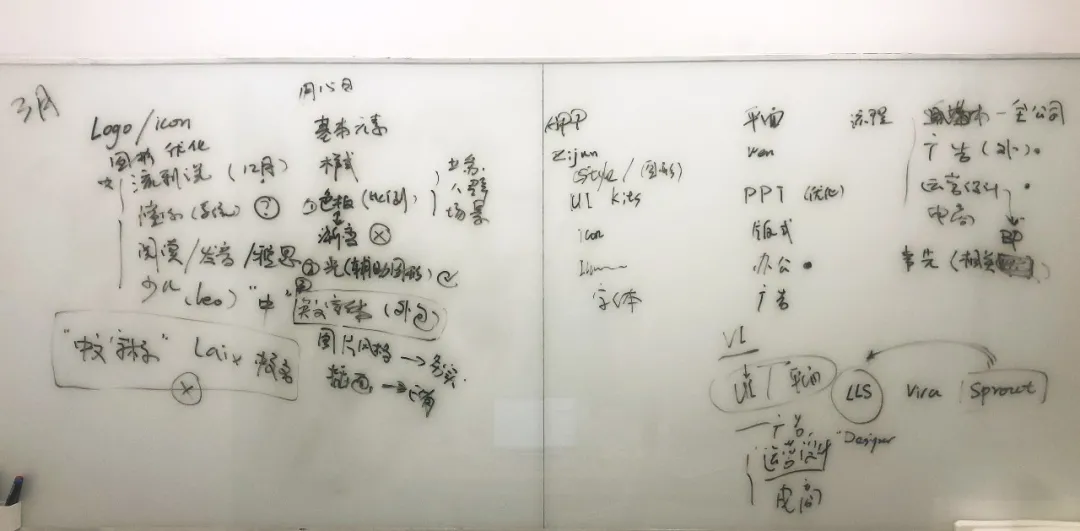 3月
Logo/icon
图形优化
流利说 (12月)
懂你 (系统) ?
阅读/发音/雅思
少儿 (Leo) "中"
"中文字标" Laix
基本元素
样式
① 色板 (比例)
渐变
② 光 (辅助图形)
英文字体 (外包)
图片风格 →
插画 →
业务
人群
场景
APP
Zijun
Style/(图形)
UI kits
icon
字体
平面
PPT (优化)
版式
办公
广告
流程
一 全公司
广告 (外)
运营设计
电商
BP
事先
VI
UI 平面
LLS
Vira
Sprout
广告
运营设计
"Designer
电商